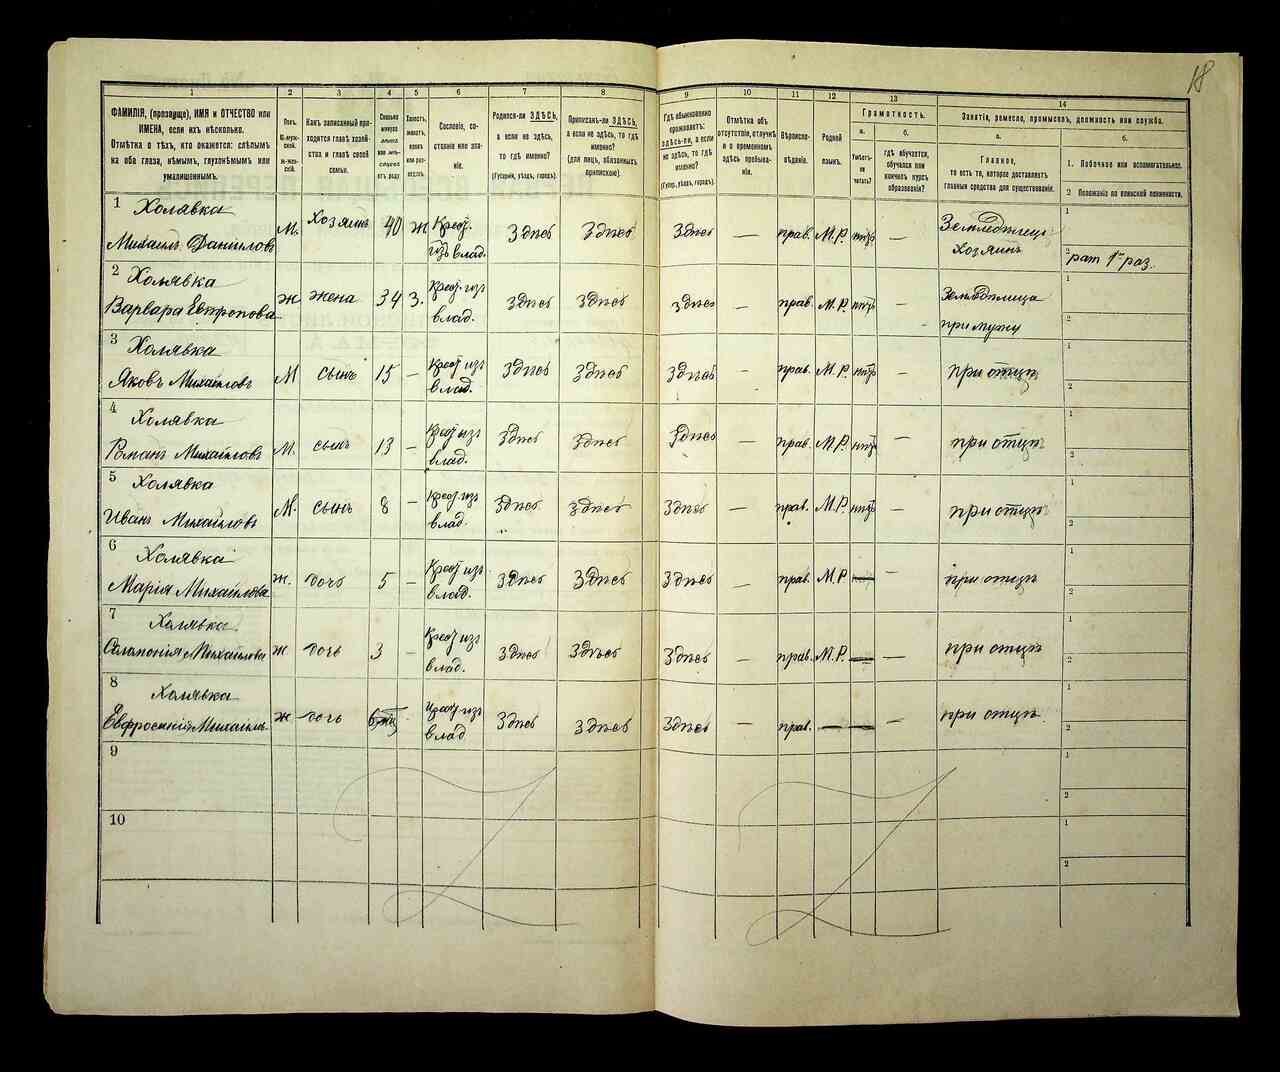 18
1
2
3
4
5
6
7
8
9
10
11
12
13
14
ФАМИЛІЯ, (прозвище), ИМЯ и ОТЧЕСТВО или
ИМЕНА, если ихъ нѣсколько.
Отмѣтка о тѣхъ, кто окажется: слѣпымъ
на оба глаза, нѣмымъ, глухонѣмымъ или
умалишеннымъ.
Полъ.
М-муж-
ской.
Ж-жен-
скій.
Какъ записанный при-
ходится главѣ хозяй-
ства и главѣ своей
семьи.
Сколько
минуло
лѣтъ
или мѣ-
сяцевъ
отъ роду
Холостъ,
женатъ,
вдовъ
или раз-
веденъ.
Сословіе, со-
стояніе или зва-
ніе.
Родился-ли ЗДѢСЬ,
а если не здѣсь,
то гдѣ именно?
(Губернія, уѣздъ, городъ).
Приписанъ-ли ЗДѢСЬ,
а если не здѣсь, то гдѣ
именно?
(для лицъ, обязанныхъ
припискою).
Гдѣ обыкновенно
проживаетъ:
здѣсь-ли, а если
не здѣсь, то гдѣ
именно?
(Губер., уѣздъ, городъ).
Отмѣтка объ
отсутствіи, отлучкѣ
и о временномъ
здѣсь пребыва-
ніи.
Вѣроиспо-
вѣданіе.
Родной
языкъ.
Грамотность.
а.
Умѣетъ-
ли
читать?
б.
гдѣ обучается,
обучался или
кончилъ курсъ
образованія?
Занятіе, ремесло, промыселъ, должность или служба.
а.
Главное,
то есть то, которое доставляетъ
главныя средства для существованія.
б.
1. Побочное или вспомогательное.
2 Положеніе по воинской повинности.
1 Холявка
Михаилъ Даниловъ М. хозяинъ 40 Ж Крест. изъ влад. Здѣсь Здѣсь Здѣсь — прав. М.Р. нѣтъ — Земледѣлецъ хозяинъ
1
2 рат 1го раз.
2 Холявка
Варвара Евтропова Ж жена 34 З. Крест. изъ влад. Здѣсь Здѣсь Здѣсь — прав. М.Р. нѣтъ — Земледѣлица при мужу
1
2
3 Холявка
Яковъ Михайловъ М сынъ 15 — Крест изъ влад. Здѣсь Здѣсь Здѣсь — прав. М.Р. нѣтъ — при отцѣ
1
2
4 Холявка
Романъ Михайловъ М. сынъ 13 — Крест изъ влад. Здѣсь Здѣсь Здѣсь — прав. М.Р. нѣтъ — при отцѣ
1
2
5 Холявка
Иванъ Михайловъ М. сынъ 8 — Крест. изъ влад. Здѣсь Здѣсь Здѣсь — прав. М.Р. нѣтъ — при отцѣ
1
2
6 Холявка
Марія Михайлова ж. дочь 5 — Крест изъ влад. Здѣсь Здѣсь Здѣсь — прав. М.Р. — — при отцѣ
1
2
7 Холявка
Михайлова ж дочь 3 — Крест изъ влад. Здѣсь Здѣсь Здѣсь — прав. М.Р. — — при отцѣ
1
2
8 Холявка
Евфросинія Михайл. ж дочь Крест. изъ влад Здѣсь Здѣсь Здѣсь — прав. — — — при отцѣ
1
2
9
1
2
10
1
2